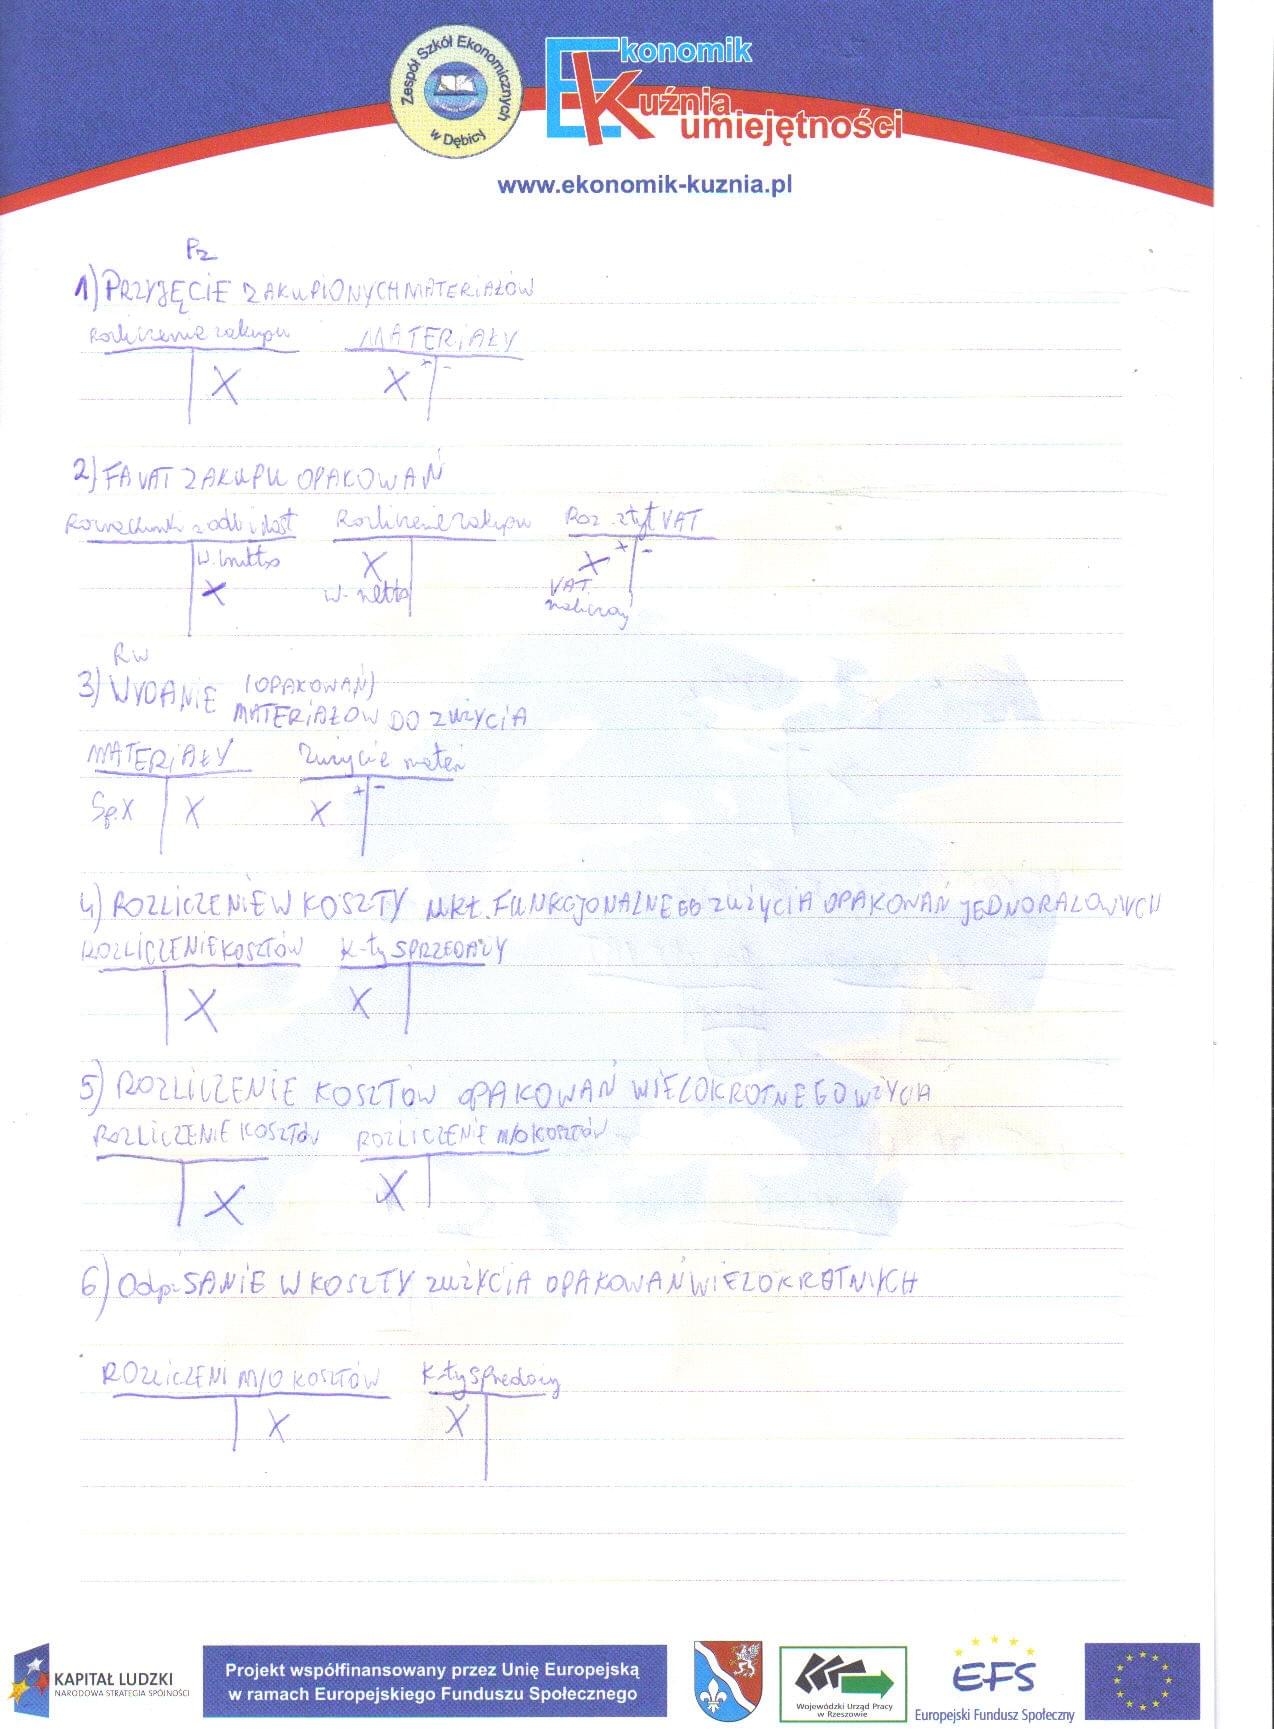 Zespół Szkół Ekonomicznych
w Dębicy
Ekonomik
Kuźnia
umiejętności
www.ekonomik-kuznia.pl
Pz
1) PRZYJĘCIE ZAKUPIONYCH MATERIAŁÓW
Rozliczenie zakupu MATERIAŁY
X X + -
2) FA VAT ZAKUPU OPAKOWAŃ
Rozrachunki z odb i dost Rozliczenie zakupu Roz. z tyt VAT
w. brutto X X + -
X w. netto VAT
naliczony
RW
3) WYDANIE (OPAKOWAŃ)
MATERIAŁÓW DO ZUŻYCIA
MATERIAŁY Zużycie mater
+ -
Sp.X X X
4) ROZLICZENIE W KOSZTY UKŁ. FUNKCJONALNEGO ZUŻYCIA OPAKOWAŃ JEDNORAZOWYCH
ROZLICZENIE KOSZTÓW K-ty SPRZEDAŻY
X X
5) ROZLICZENIE KOSZTÓW OPAKOWAŃ WIELOKROTNEGO UŻYCIA
ROZLICZENIE KOSZTÓW ROZLICZENIE M/O KOSZTÓW
X X
6) OdpiSANIE W KOSZTY ZUŻYCIA OPAKOWAŃ WIELOKROTNYCH
ROZLICZENI M/O KOSZTÓW K-ty Sprzedaży
X X
KAPITAŁ LUDZKI
NARODOWA STRATEGIA SPÓJNOŚCI
Projekt współfinansowany przez Unię Europejską
w ramach Europejskiego Funduszu Społecznego
Wojewódzki Urząd Pracy
w Rzeszowie
EFS
Europejski Fundusz Społeczny